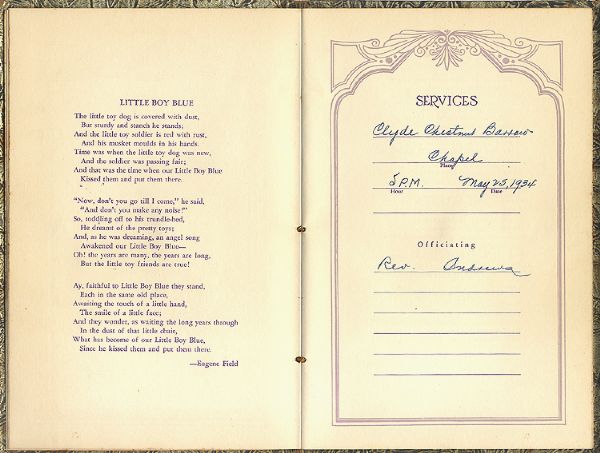 LITTLE BOY BLUE
The little toy dog is covered with dust,
But sturdy and stanch he stands;
And the little toy soldier is red with rust,
And his musket moulds in his hands.
Time was when the little toy dog was new,
And the soldier was passing fair;
And that was the time when our Little Boy Blue
Kissed them and put them there.
"Now, don't you go till I come," he said,
"And don't you make any noise!"
So, toddling off to his trundle-bed,
He dreamt of the pretty toys;
And, as he was dreaming, an angel song
Awakened our Little Boy Blue—
Oh! the years are many, the years are long,
But the little toy friends are true!
Ay, faithful to Little Boy Blue they stand,
Each in the same old place,
Awaiting the touch of a little hand,
The smile of a little face;
And they wonder, as waiting the long years through
In the dust of that little chair,
What has become of our Little Boy Blue,
Since he kissed them and put them there.
—Eugene Field
SERVICES
Clyde Chestnut Barrow
Chapel
Place
5 P.M. May 25, 1934
Hour Date
Officiating
Rev.